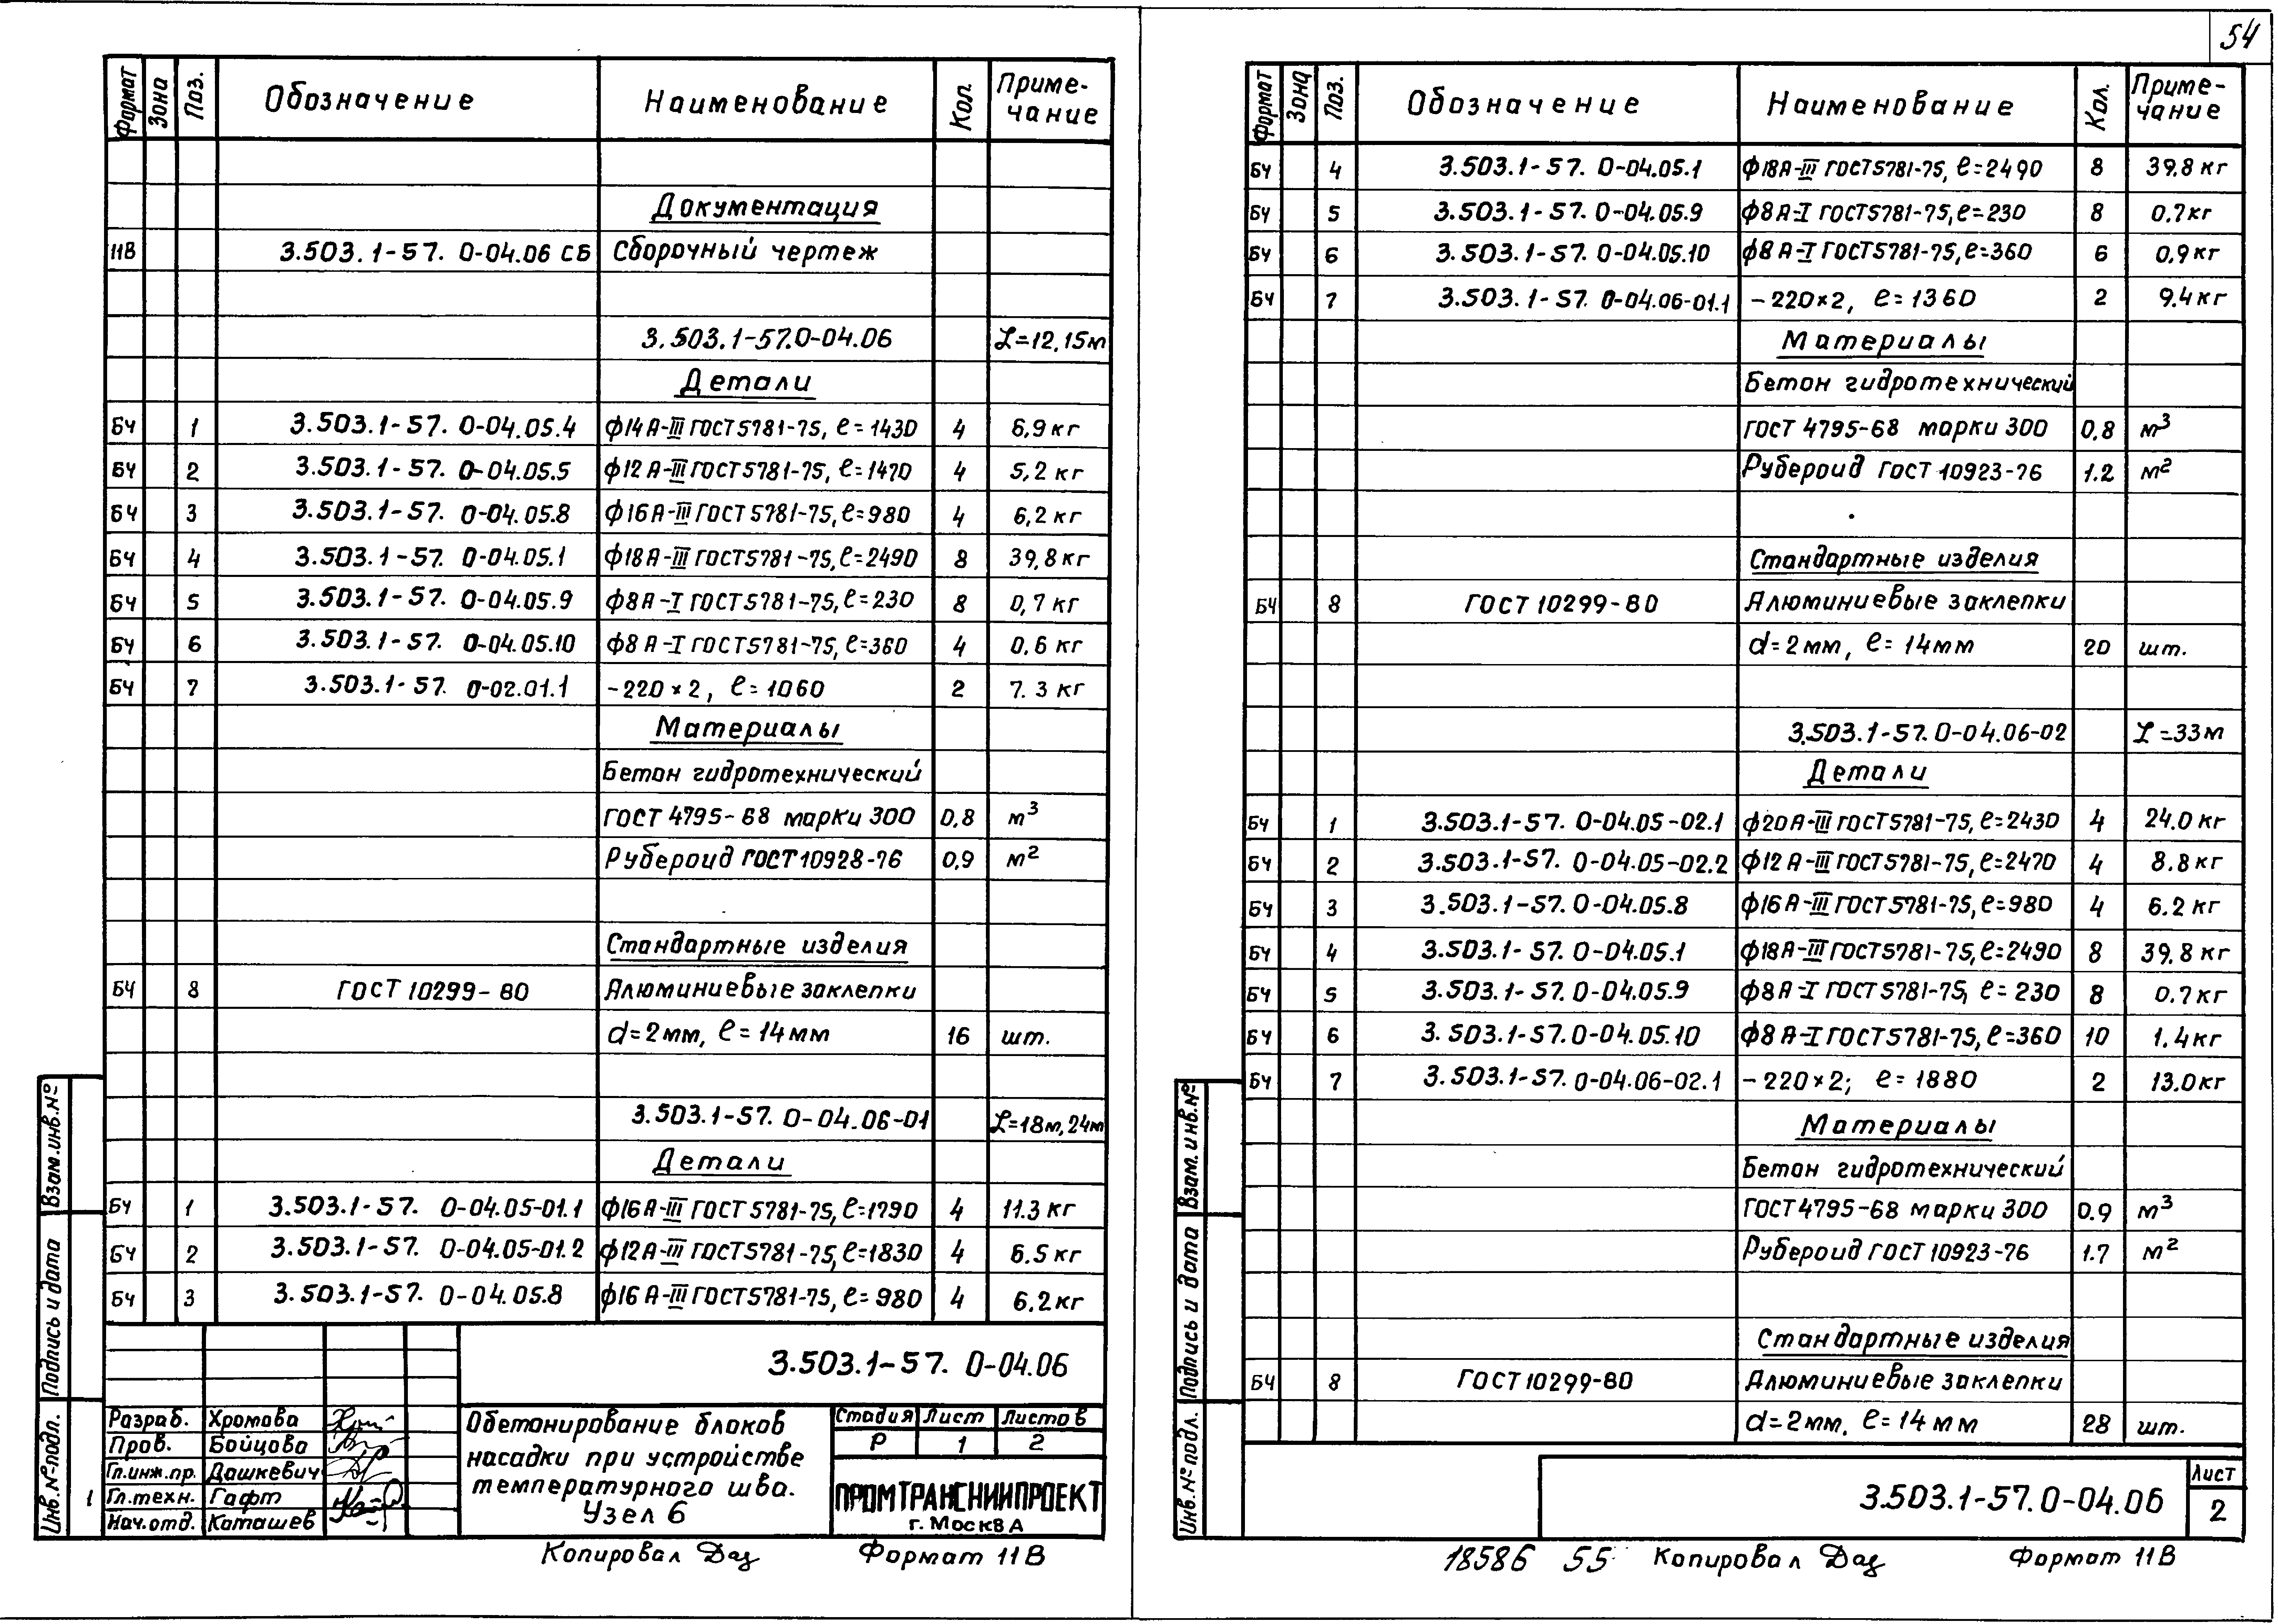 54
Формат Зона Поз. Обозначение Наименование Кол. Примечание
Документация
11В 3.503.1-57. 0-04.06 СБ Сборочный чертеж
3.503.1-57.0-04.06 L=12,15м
Детали
БЧ 1 3.503.1-57. 0-04.05.4 ф14А-III ГОСТ5781-75, ℓ=1430 4 6,9кг
БЧ 2 3.503.1-57. 0-04.05.5 ф12А-III ГОСТ5781-75, ℓ=1470 4 5,2 кг
БЧ 3 3.503.1-57. 0-04.05.8 ф16А-III ГОСТ5781-75, ℓ=980 4 6,2 кг
БЧ 4 3.503.1-57. 0-04.05.1 ф18А-III ГОСТ5781-75, ℓ=2490 8 39,8кг
БЧ 5 3.503.1-57. 0-04.05.9 ф8А-I ГОСТ5781-75, ℓ=230 8 0,7 кг
БЧ 6 3.503.1-57. 0-04.05.10 ф8А-I ГОСТ5781-75, ℓ=360 4 0.6 кг
БЧ 7 3.503.1-57. 0-02.01.1 -220×2, ℓ=1060 2 7.3 кг
Материалы
Бетон гидротехнический
ГОСТ 4795-68 марки 300 0,8 м³
Рубероид ГОСТ10928-76 0,9 м²
Стандартные изделия
БЧ 8 ГОСТ 10299-80 Алюминиевые заклепки
d=2мм, ℓ=14мм 16 шт.
3.503.1-57. 0-04.06-01 L=18м,24м
Детали
БЧ 1 3.503.1-57. 0-04.05-01.1 ф16А-III ГОСТ5781-75, ℓ=1790 4 11.3 кг
БЧ 2 3.503.1-57. 0-04.05-01.2 ф12А-III ГОСТ5781-75, ℓ=1830 4 6.5кг
БЧ 3 3.503.1-57. 0-04.05.8 ф16А-III ГОСТ5781-75, ℓ=980 4 6.2кг
3.503.1-57. 0-04.06
Разраб. Хромова
Пров. Бойцова
Гл.инж.пр. Дашкевич
Гл.техн. Гафт
Нач.отд. Каташев
Обетонирование блоков
насадки при устройстве
температурного шва.
Узел 6
Стадия Лист Листов
Р 1 2
ПРОМТРАНСНИИПРОЕКТ
г. МОСКВА
Взам.инв.№
Подпись и дата
Инв.№подл.
1
Копировал Формат 11В
Формат Зона Поз. Обозначение Наименование Кол. Примечание
БЧ 4 3.503.1-57. 0-04.05.1 ф18А-III ГОСТ5781-75, ℓ=2490 8 39.8кг
БЧ 5 3.503.1-57. 0-04.05.9 ф8А-I ГОСТ5781-75, ℓ=230 8 0.7кг
БЧ 6 3.503.1-57. 0-04.05.10 ф8А-I ГОСТ5781-75, ℓ=360 6 0.9кг
БЧ 7 3.503.1-57. 0-04.06-01.1 -220×2, ℓ=1360 2 9.4кг
Материалы
Бетон гидротехнический
ГОСТ 4795-68 марки 300 0,8 м³
Рубероид ГОСТ 10923-76 1.2 м²
Стандартные изделия
БЧ 8 ГОСТ 10299-80 Алюминиевые заклепки
d=2мм, ℓ=14мм 20 шт.
3.503.1-57.0-04.06-02 L=33м
Детали
БЧ 1 3.503.1-57. 0-04.05-02.1 ф20А-III ГОСТ5781-75, ℓ=2430 4 24.0 кг
БЧ 2 3.503.1-57. 0-04.05-02.2 ф12А-III ГОСТ5781-75, ℓ=2470 4 8.8 кг
БЧ 3 3.503.1-57. 0-04.05.8 ф16А-III ГОСТ5781-75, ℓ=980 4 6.2 кг
БЧ 4 3.503.1-57. 0-04.05.1 ф18А-III ГОСТ5781-75, ℓ=2490 8 39,8 кг
БЧ 5 3.503.1-57. 0-04.05.9 ф8А-I ГОСТ5781-75, ℓ=230 8 0.7кг
БЧ 6 3.503.1-57.0-04.05.10 ф8А-I ГОСТ5781-75, ℓ=360 10 1.4кг
БЧ 7 3.503.1-57. 0-04.06-02.1 -220×2; ℓ=1880 2 13.0кг
Материалы
Бетон гидротехнический
ГОСТ4795-68 марки 300 0.9 м³
Рубероид ГОСТ 10923-76 1.7 м²
Стандартные изделия
БЧ 8 ГОСТ10299-80 Алюминиевые заклепки
d=2мм, ℓ=14мм 28 шт.
3.503.1-57.0-04.06
Лист
2
Взам.инв.№
Подпись и дата
Инв.№подл.
18586 55 Копировал Формат 11В